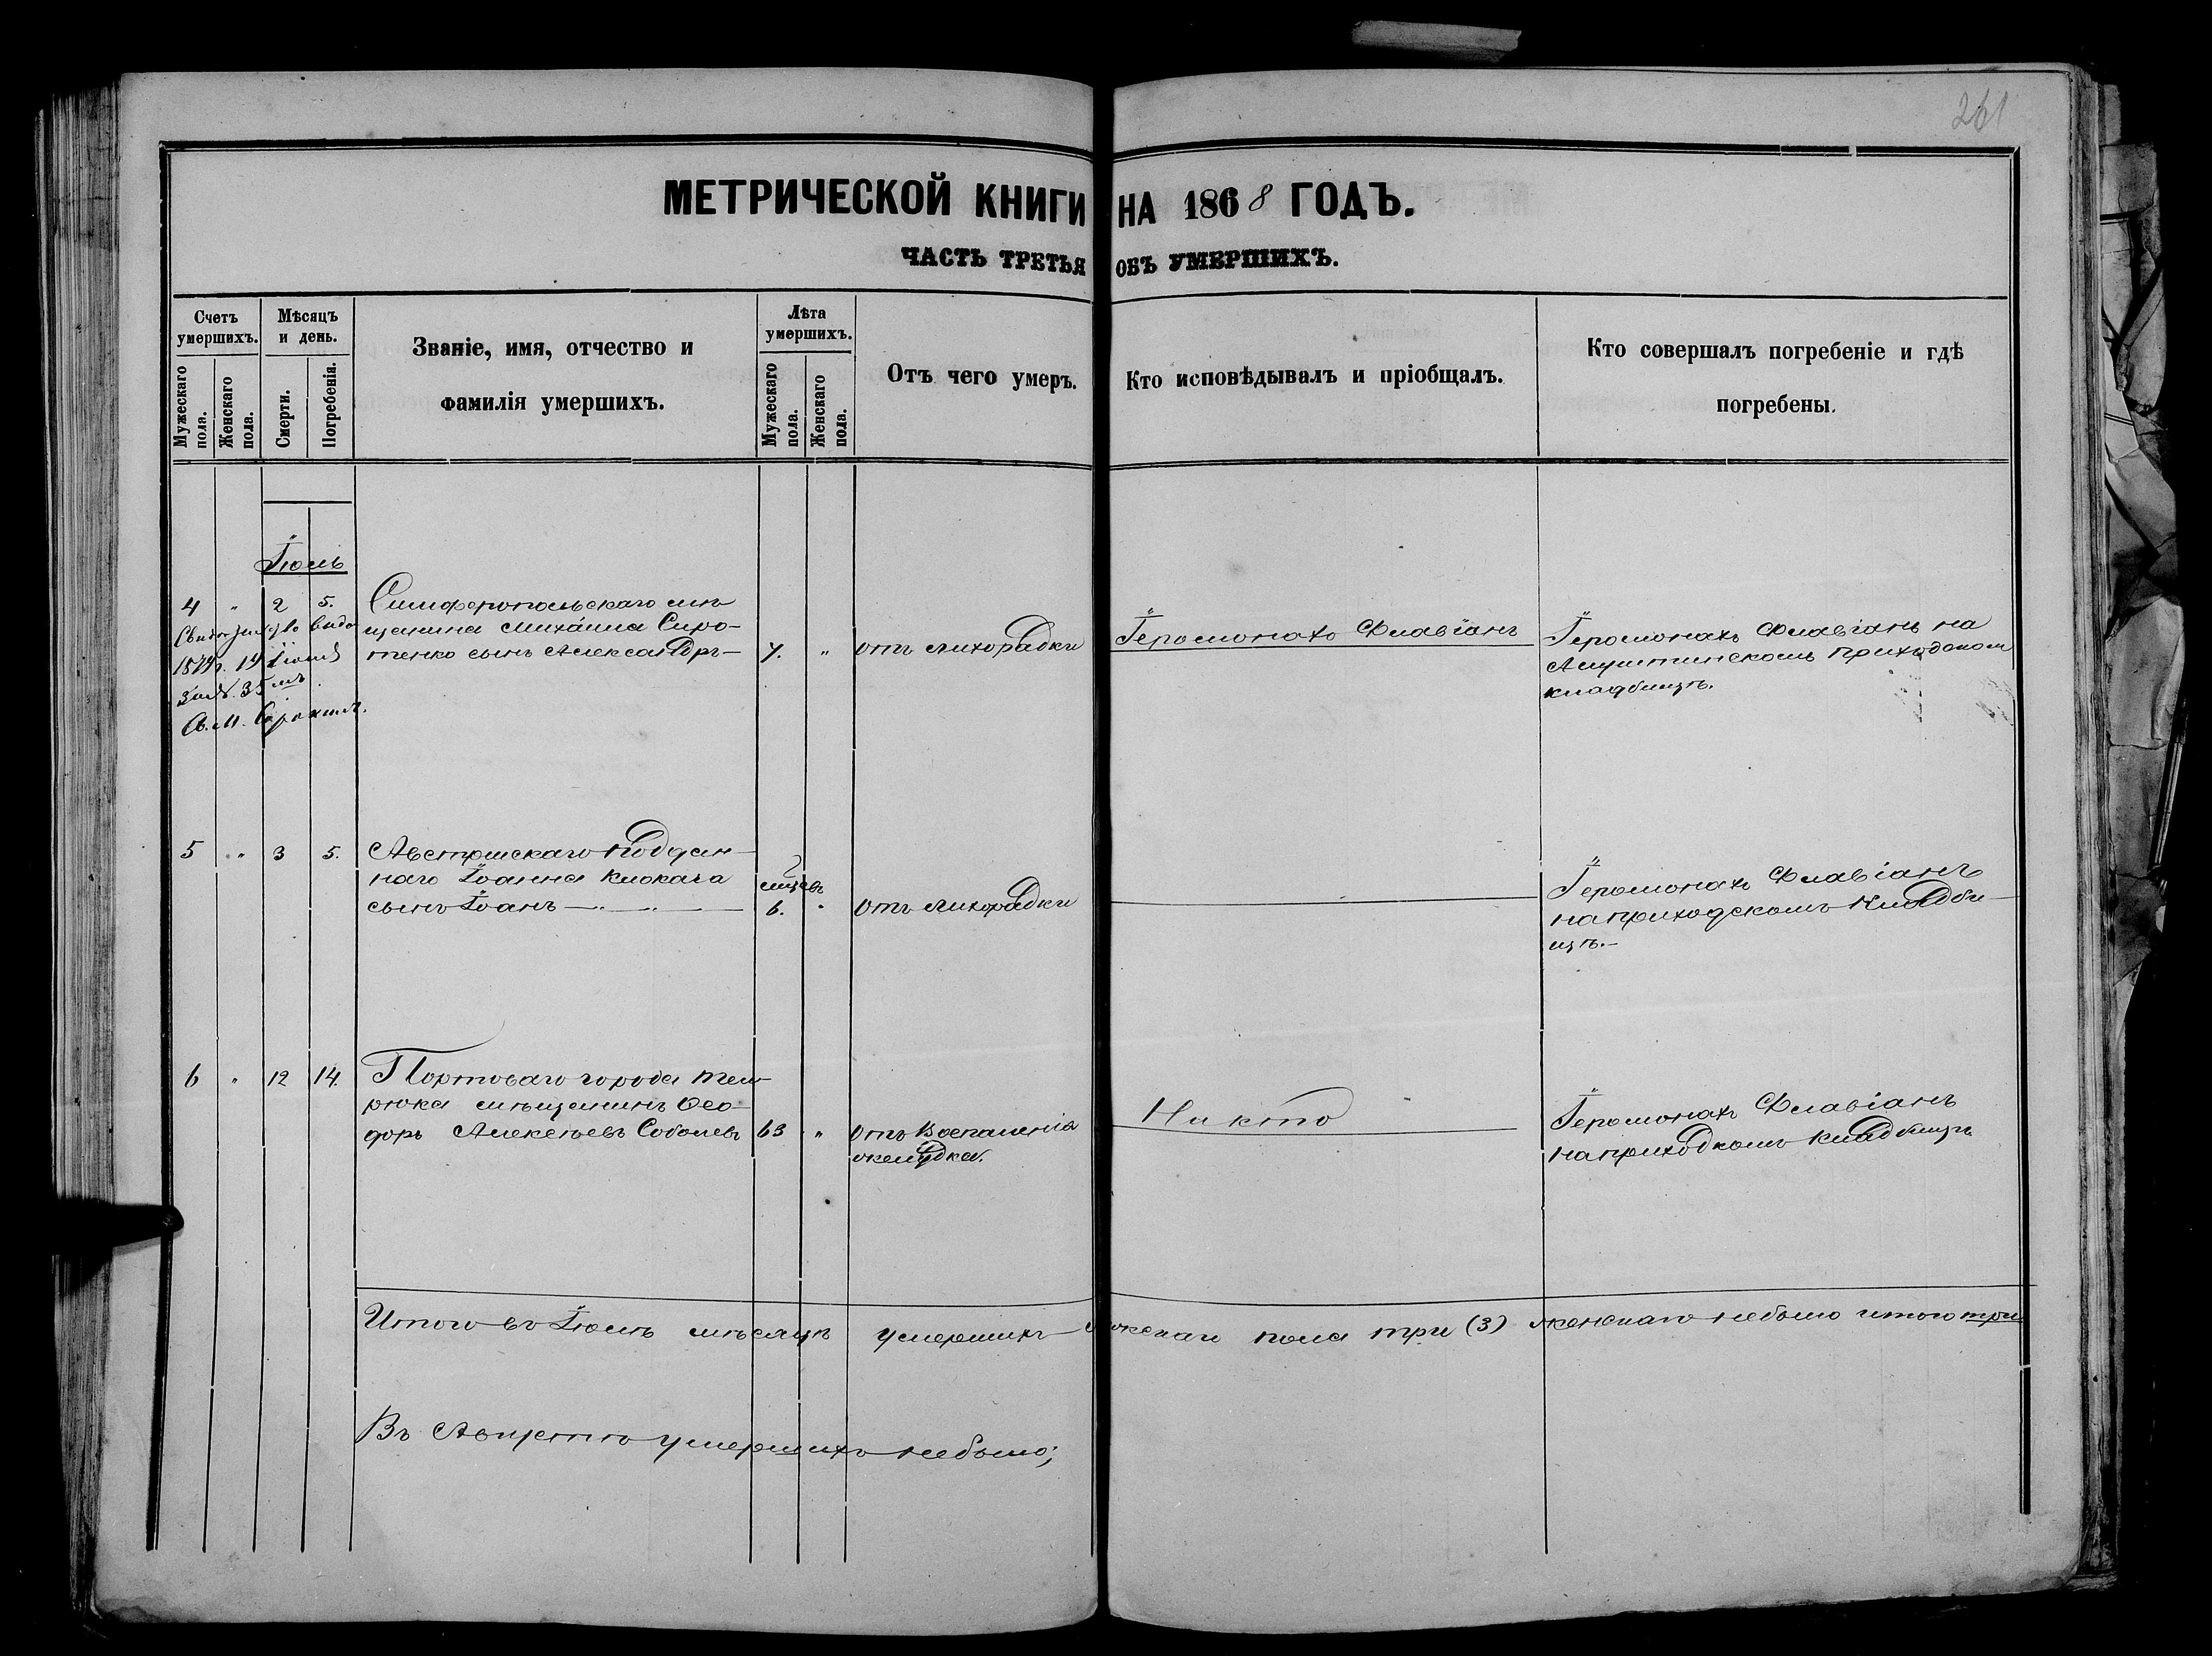 261
МЕТРИЧЕСКОЙ КНИГИ НА 1868 ГОДЪ.
ЧАСТЬ ТРЕТЬЯ ОБЪ УМЕРШИХЪ.
Счетъ умершихъ.
Мужескаго пола.
Женскаго пола.
Мѣсяцъ и день.
Смерти.
Погребенія.
Званіе, имя, отчество и
фамилія умершихъ.
Лѣта умершихъ.
Мужескаго пола.
Женскаго пола.
Отъ чего умеръ.
Кто исповѣдывалъ и пріобщалъ.
Кто совершалъ погребеніе и гдѣ
погребены.
Іюль
4 " 2 5.
Симферопольскаго мѣ-
щанина Михаила Сиро-
тенко сынъ Александръ—
7. "
отъ лихорадки
Іеромонахъ Флавіанъ
Іеромонахъ Флавіанъ на
Алуштинскомъ приходском
кладбищѣ.
1879г. 19
5 " 3 5.
Австрійскаго поддан-
наго Іоанна Клокача
сынъ Іоанъ
6. "
отъ лихорадки
Іеромонахъ Флавіанъ
на приходскомъ кладби-
щѣ.—
6 " 12 14.
Портоваго города Тем-
рюка мѣщанинъ Ѳео-
доръ Алексѣевъ Соболевъ
63 "
отъ воспаленія
желудка.
Никто
Іеромонахъ Флавіанъ
на приходкомъ кладбищѣ
Итого въ Іюлѣ мѣсяцѣ умершихъ мужскаго пола три (3) женскаго небыло итого три
Въ Августѣ умершихъ небыло;